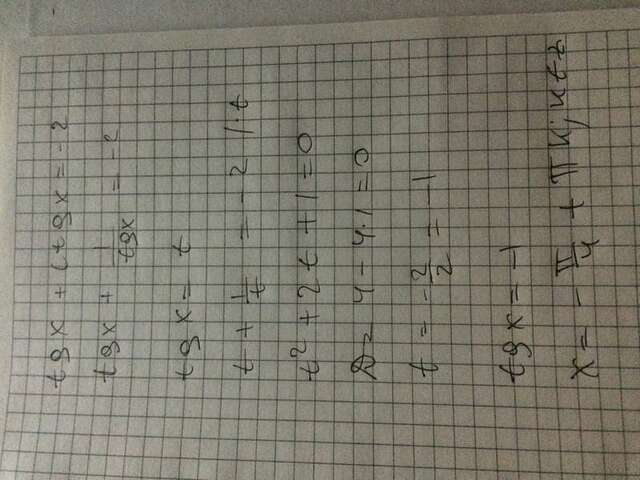 tgx + ctgx = -2
tgx + 1/tgx = -2
tgx = t
t + 1/t = -2 | · t
t² + 2t + 1 = 0
D = 4 - 4·1 = 0
t = -2/2 = -1
tgx = -1
x = -π/4 + πk; k∈z